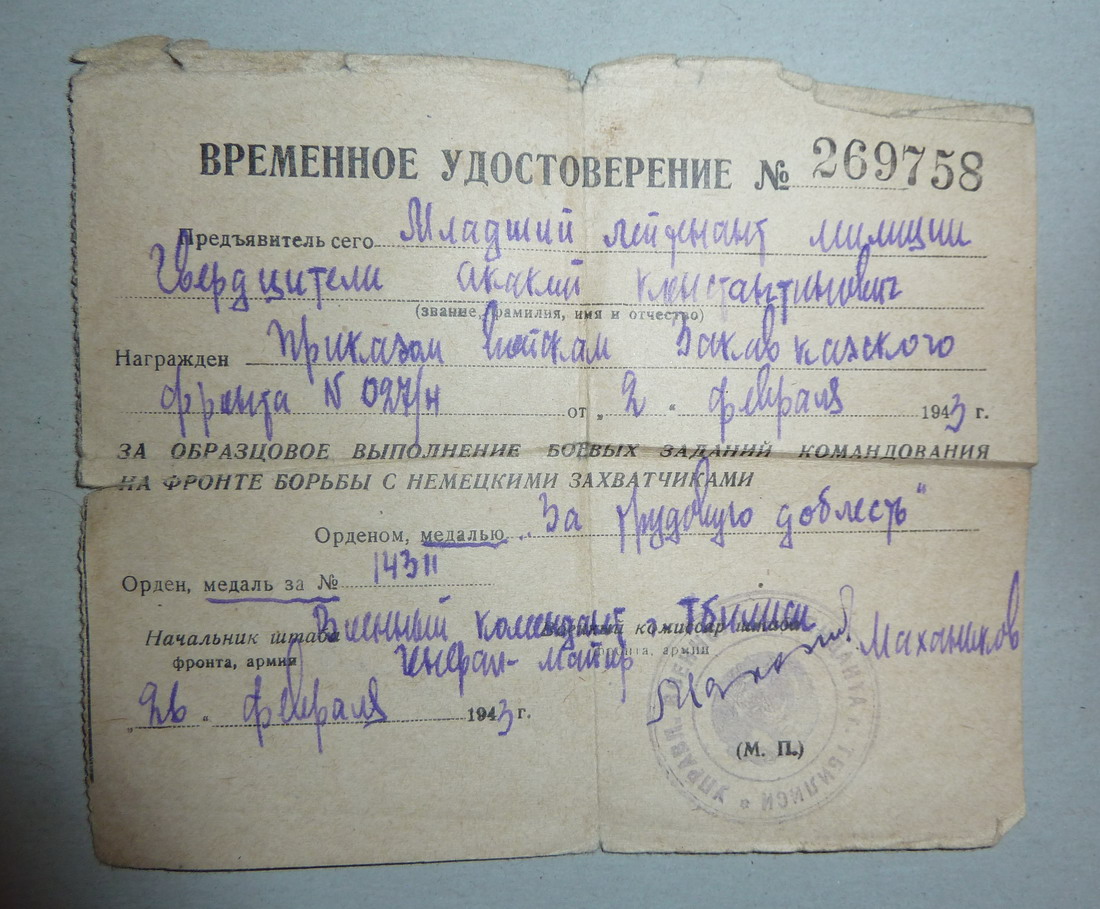 ВРЕМЕННОЕ УДОСТОВЕРЕНИЕ № 269758
Предъявитель сего Младший лейтенант милиции
Гвердцители Акакий Константинович
(звание, фамилия, имя и отчество)
Награжден Приказом Войскам Закавказского
фронта N 027/н от „ 2 " февраля 1943 г.
ЗА ОБРАЗЦОВОЕ ВЫПОЛНЕНИЕ БОЕВЫХ ЗАДАНИЙ КОМАНДОВАНИЯ
НА ФРОНТЕ БОРЬБЫ С НЕМЕЦКИМИ ЗАХВАТЧИКАМИ
Орденом, медалью „За трудовую доблесть"
Орден, медаль за №
Военный комендант г. Тбилиси
Начальник штаба Военный комиссар штаба
фронта, армия фронта, армии
Генерал-майор Махаников
„ 26 " февраля 1943 г.
(М. П.)
УПРАВЛ. ВОЕН КОМЕНДАНТА г. ТБИЛИСИ